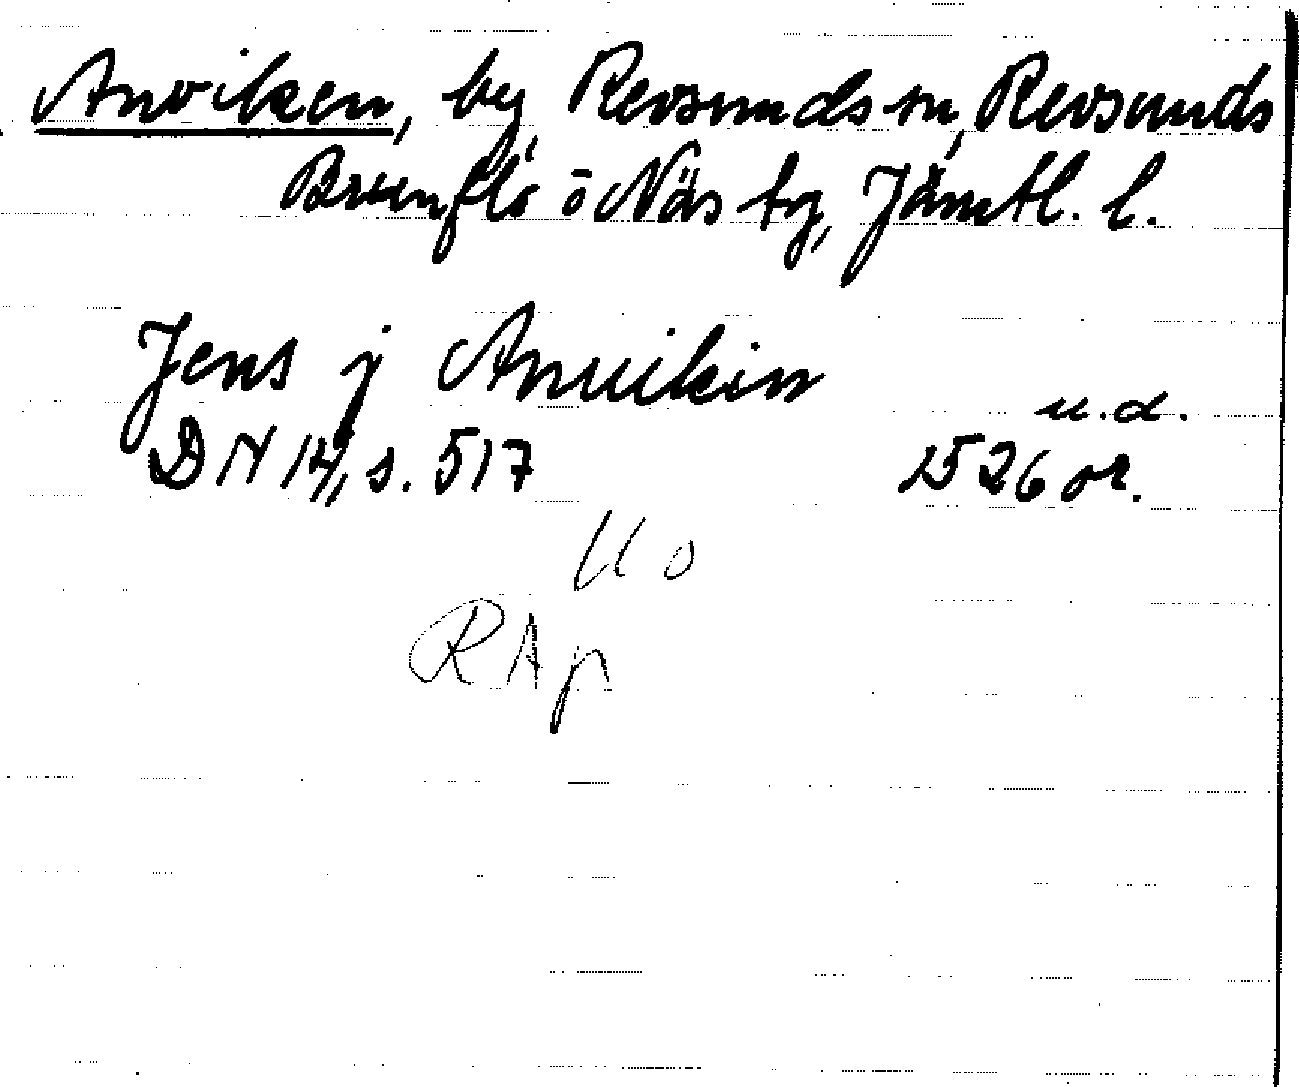 Anviken, by, Revsunds sn, Revsunds
Brunflo o Näs tg, Jämtl. l.
Jens j Anuikin
u.d.
DN 14, s. 517 1526 or.
RAp